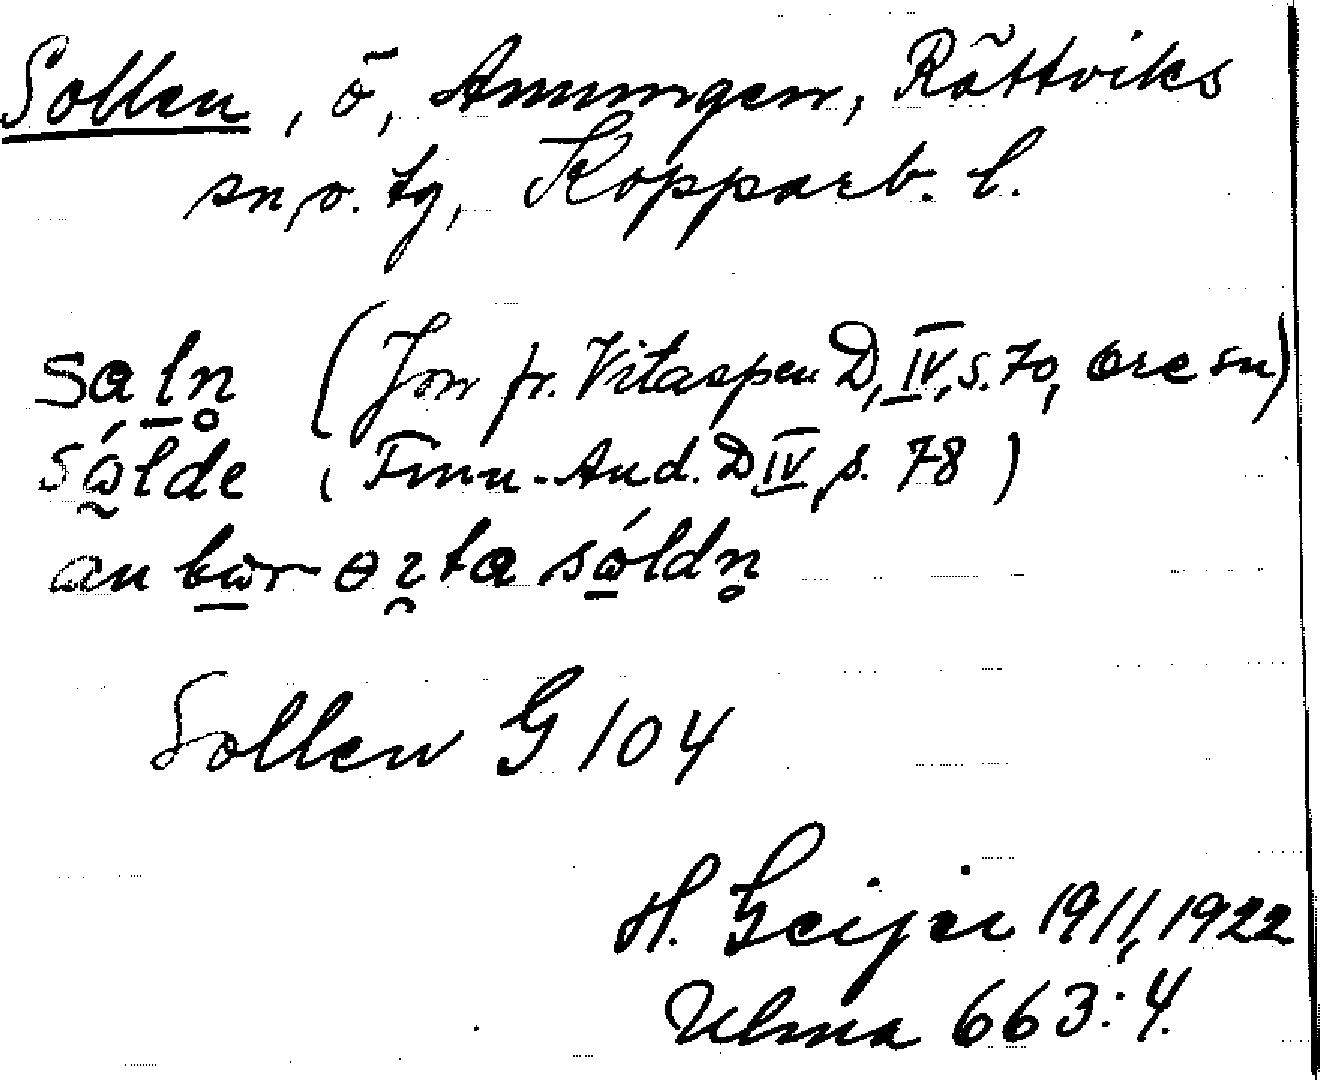 Sollen, ö, Amungen, Rättviks
sn, o. tg, Kopparb. l.
saln̥ (Jon fr. Vitaspen D, IV, s. 70, Ore sn)
sålde (Finn-And. D IV, s. 78)
an bær sóldn̥
Sollen G 104
H. Geijer 1911, 1922
Ulma 663:4.